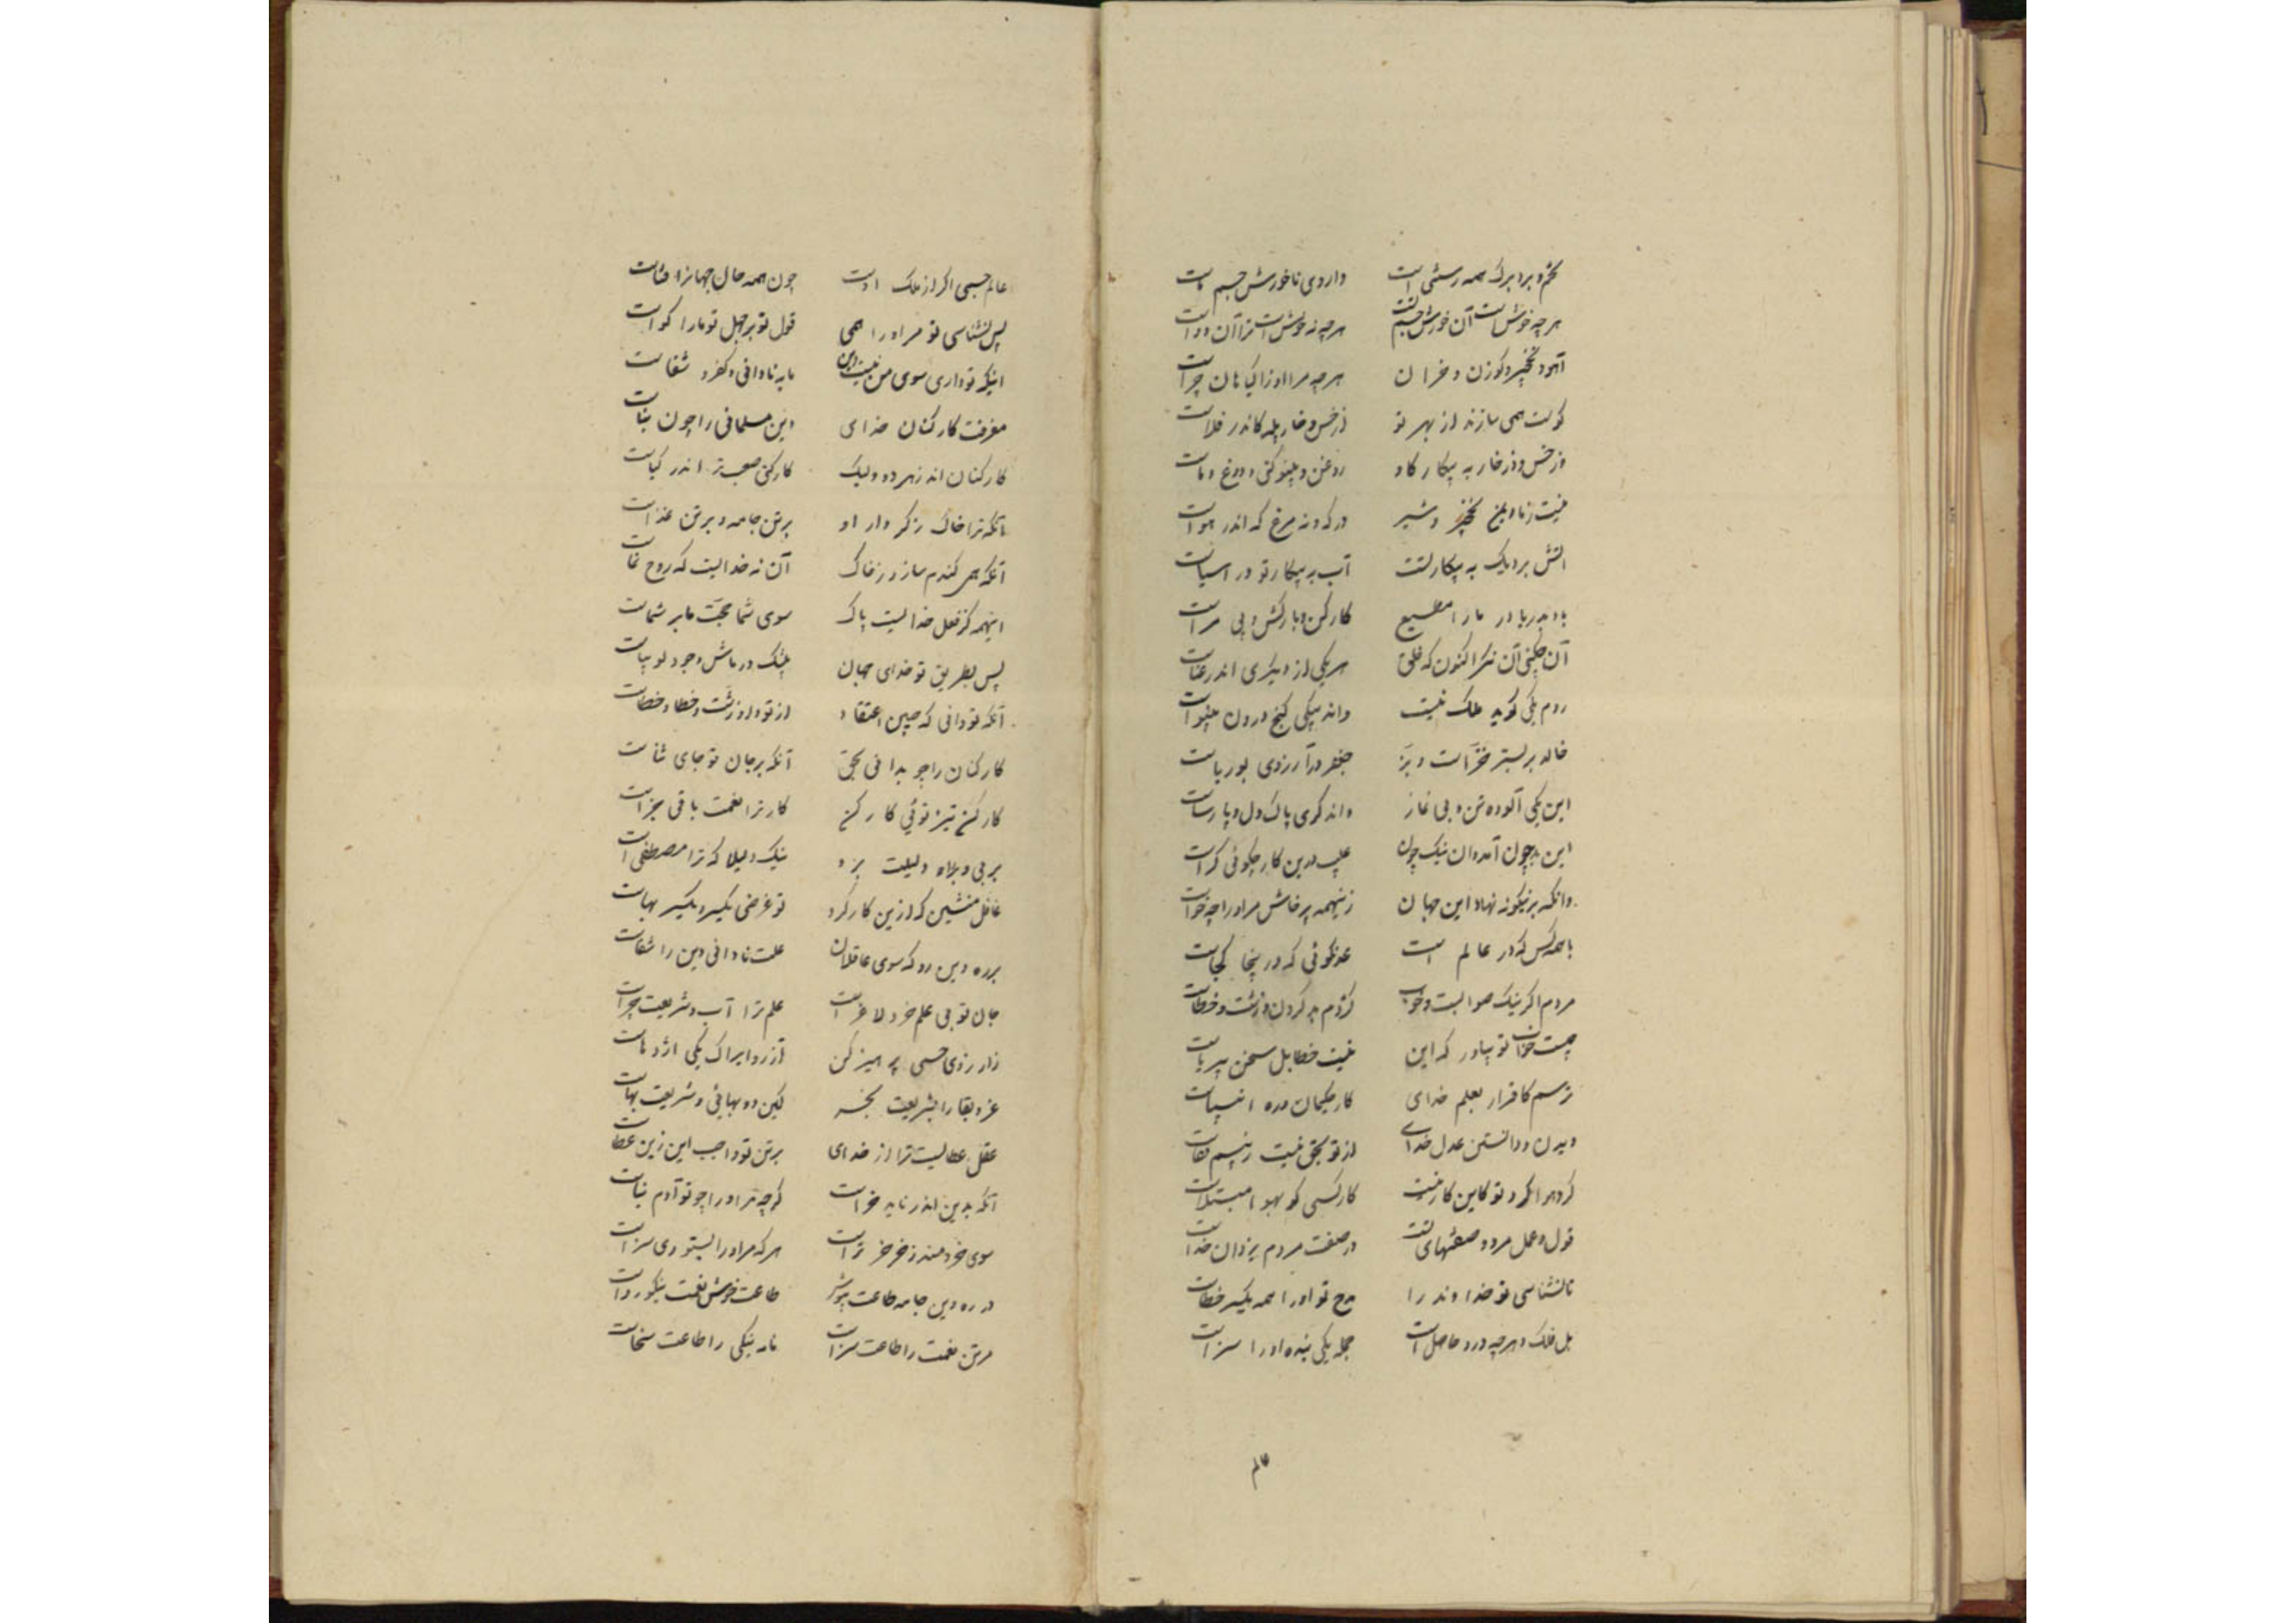 تخم و بر و برگ همه رستنی است داروی ما خورش جسم ماست
هر چه خوش است آن خورش جسم تست هر چه نه خوش است ترا آن دواست
آهو و نخچیر و گوزن و خران هر چه مر او را ز گیاهان چراست
گوشت همی سازند از بهر تو از خس و خار یله کاندر فلاست
وز خس و از خار به بیگار گاو روغن و پینو کنی و دوغ و ماست
نیست ز ما ایمن نخچیر و شیر در که و نه مرغ که اندر هواست
آتش بر دیگ به بیگار تست آب به بیگار تو در آسیاست
باد به دریا در ما را مطیع کارکن و بارکش و بی مراست
آن چه کنی آن نگر اکنون که خلق هر یکی از دیگری اندر عناست
روم یکی گوید ملک نیست واند یکی گنج درون بینواست
خالد بر بستر خز است و بز جعفر در آرزوی بوریاست
این یکی آلوده تن و بی نماز واندگری پاک دل و پارساست
این بد چون آمد و آن نیک چون عیب درین کار چگوئی کراست
وانکه برینگونه نهاد این جهان زینهمه پرخاش مر او را چه خواست
با همه کس که در عالم است عدل نگوئی که درینجا کجاست
مردم اگر نیک صوابست و خوب کژدم بد کردن و زشت و خطاست
چیست جواب تو بیاور که این نیست خطا بل سخن بی ریاست
ترسم کاقرار بعلم خدای کار حکیمان و ره انبیاست
دیدن و دانستن عدل خدای از تو بحق نیست ز بیم قفاست
گرد هوا گرد تو کاین کار نیست کار کسی کو بهوا مبتلاست
قول و عمل مر دو صفتهای تست در صفت مردم یزدان خداست
تا نشناسی تو خداوند را مدح تو او را همه یکسر خطاست
بل فلک و هر چه درو حاصل است جمله یکی بنده او را سزاست
عالم
عالم جسمی اگر از ملک اوست چون همه حال جهان را فناست
پس نشناسی تو مر او را همی قول تو بر جهل تو ما را گواست
اینکه تو داری سوی من نیست دین مایه نادانی و کفر و شقاست
معرفت کارکنان خدای دین مسلمانی را چون بناست
کارکنان اند ز هر در ولیک کارکنی صعب تر اندر گیاست
آنکه ترا خاک ز کردار او بر تن جامه و بر تن غذاست
آنکه همی گندم سازد ز خاک آن نه خدایست که روح نماست
اینهمه کز فعل خدایست پاک سوی شما حجت ما بر شماست
پس بطریق تو خدای جهان بیشک در ماش و جو و لوبیاست
آنکه تو دانی که چنین اعتقاد از تو در او زشت و خطا و خطاست
کارکنان را چو بدانی بحق آنکه بر جان تو جای ثناست
کارکن نیز توئی کار کن کار ترا نعمت باقی جزاست
بر پی و بر راه دلیلت برو نیک دلیلا که ترا مصطفی است
غافل منشین که ازین کارکرد تو غرضی یکسر و یکسر هباست
بر ره دین رو که سوی عاقلان علت نادانی دین را شفاست
جان تو بی علم خر لاغر است علم ترا آب و شریعت چراست
زآرزوی حسی پرهیز کن آرزو ایراک یکی اژدهاست
عز و بقا را بشریعت بخر لیکن دو بهائی و شریعت بهاست
عقل عطائیست ترا از خدای بر تن تو واجب این زین عطاست
آنکه بدین اندر ناید خر است گرچه مر او را چو تو آدم نیاست
سوی خردمند ز خر خرتر است هر که مر او را بستوری سزاست
در ره دین جامه طاعت بپوش طاعت خوش نعمت نیکو رداست
مر تن نعمت را طاعت سر است نامه نیکی را طاعت سخاست